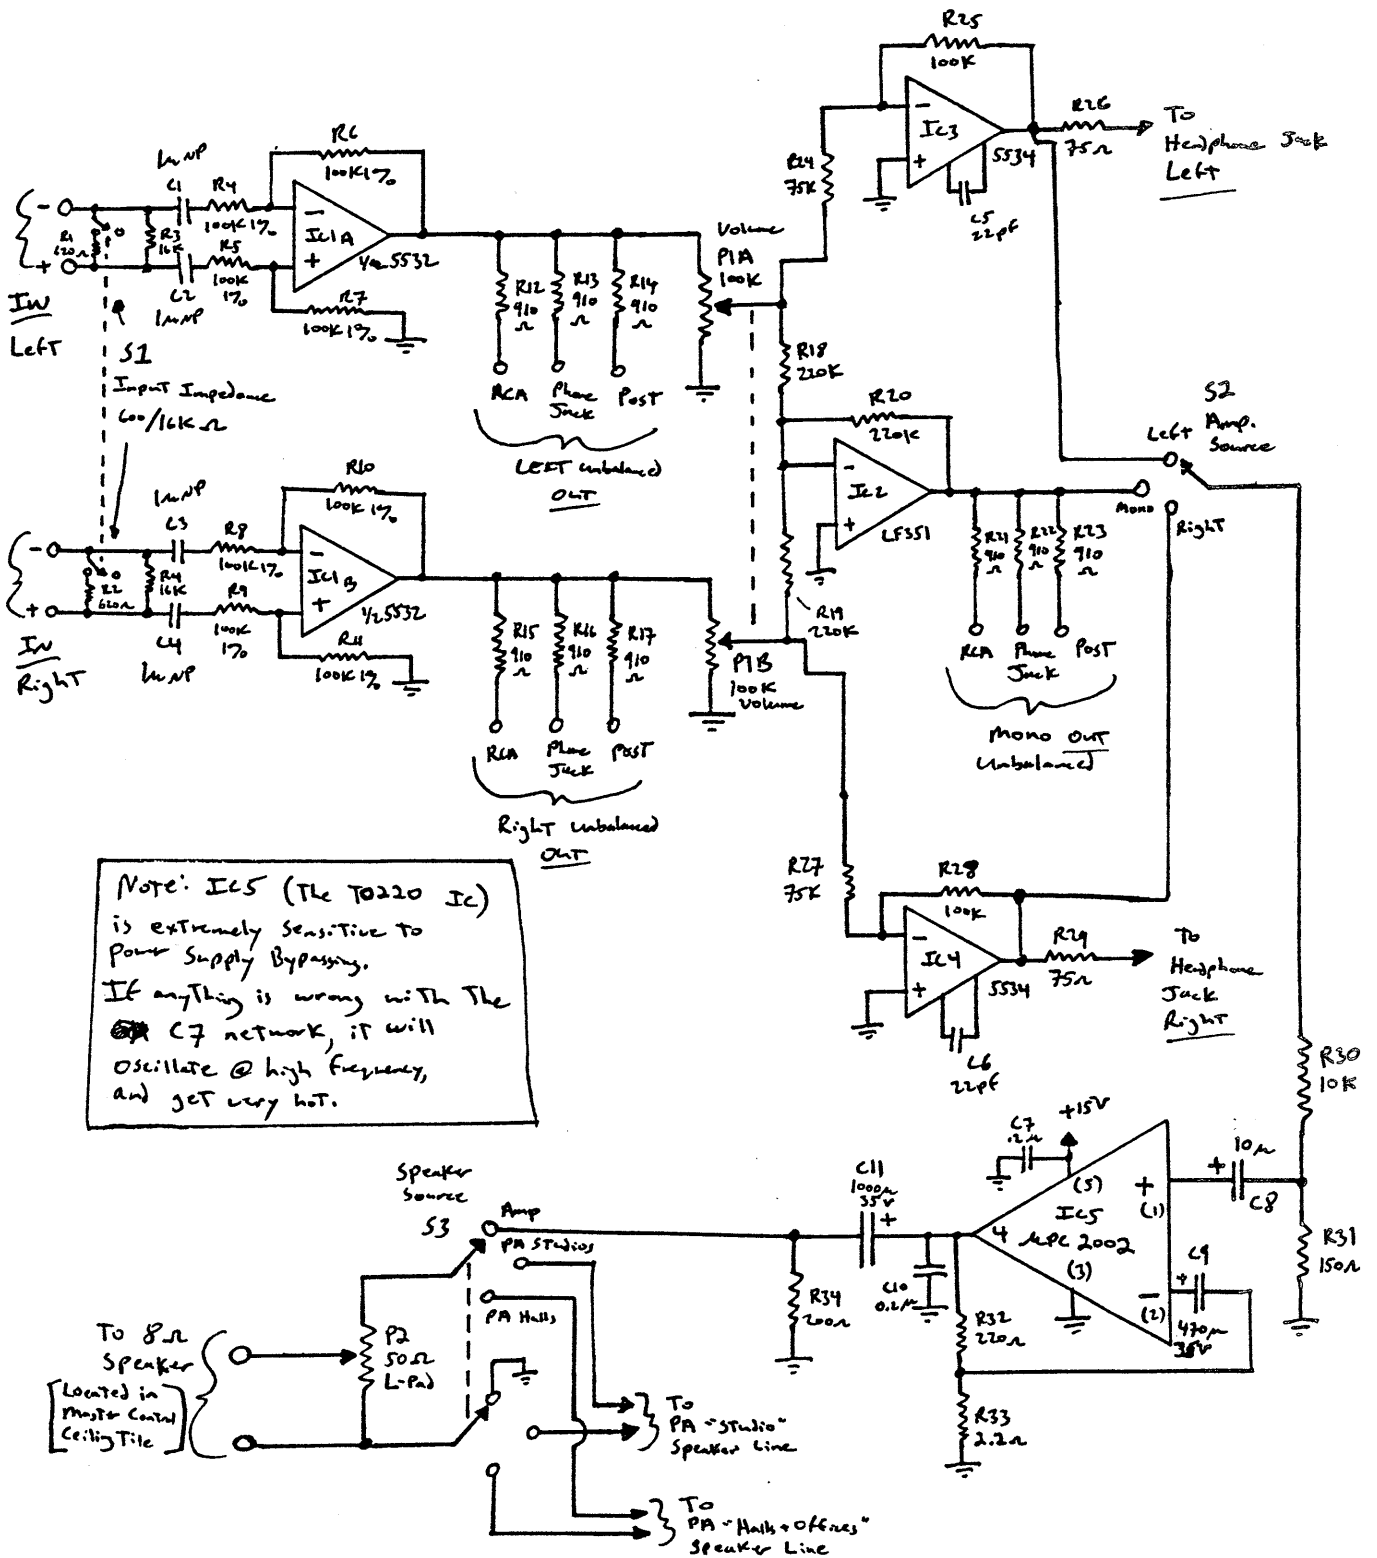 R25
100K
IC3
5534
R26
75Ω
To
Headphone Jack
Left
R24
75K
C5
22pf
R6
100K 1%
1µ NP
C1
R4
100K 1%
R1
620Ω
R3
16K
R5
100K
1%
C2
1µ NP
IC1A
1/2 5532
R7
100K 1%
-
+
IN
Left
S1
Input Impedance
600/16K Ω
R12
910
Ω
R13
910
Ω
R14
910
Ω
RCA
Phone
Jack
Post
LEFT Unbalanced
OUT
Volume
P1A
100K
R18
220K
R20
220K
IC2
LF351
S2
Amp.
Source
Left
Mono
Right
R21
910
Ω
R22
910
Ω
R23
910
Ω
RCA
Phone
Jack
Post
Mono OUT
Unbalanced
R19
220K
R10
100K 1%
1µ NP
C3
R8
100K 1%
R2
620Ω
R4
16K
R9
100K
1%
C4
1µ NP
IC1B
1/2 5532
R11
100K 1%
-
+
IN
Right
R15
910
Ω
R16
910
Ω
R17
910
Ω
RCA
Phone
Jack
Post
Right Unbalanced
OUT
P1B
100K
Volume
R27
75K
R28
100K
IC4
5534
R29
75Ω
To
Headphone
Jack
Right
C6
22pf
Note: IC5 (The TO220 IC)
is extremely sensitive to
Power Supply Bypassing.
If anything is wrong with the
C7 network, it will
oscillate @ high frequency,
and get very hot.
R30
10K
R31
150Ω
+15V
C7
.2µ
10µ
+
C8
(5)
+
(1)
IC5
4
µPC 2002
(3)
-
(2)
C9
+
470µ
35V
C11
1000µ
35V
+
C10
0.2µ
R32
220Ω
R33
2.2Ω
R34
200Ω
Speaker
Source
S3
Amp
PA Studios
PA Halls
P2
50Ω
L-Pad
To 8Ω
Speaker
[Located in
Master Control
Ceiling Tile]
To
PA "Studio"
Speaker Line
To
PA "Halls + Offices"
Speaker Line